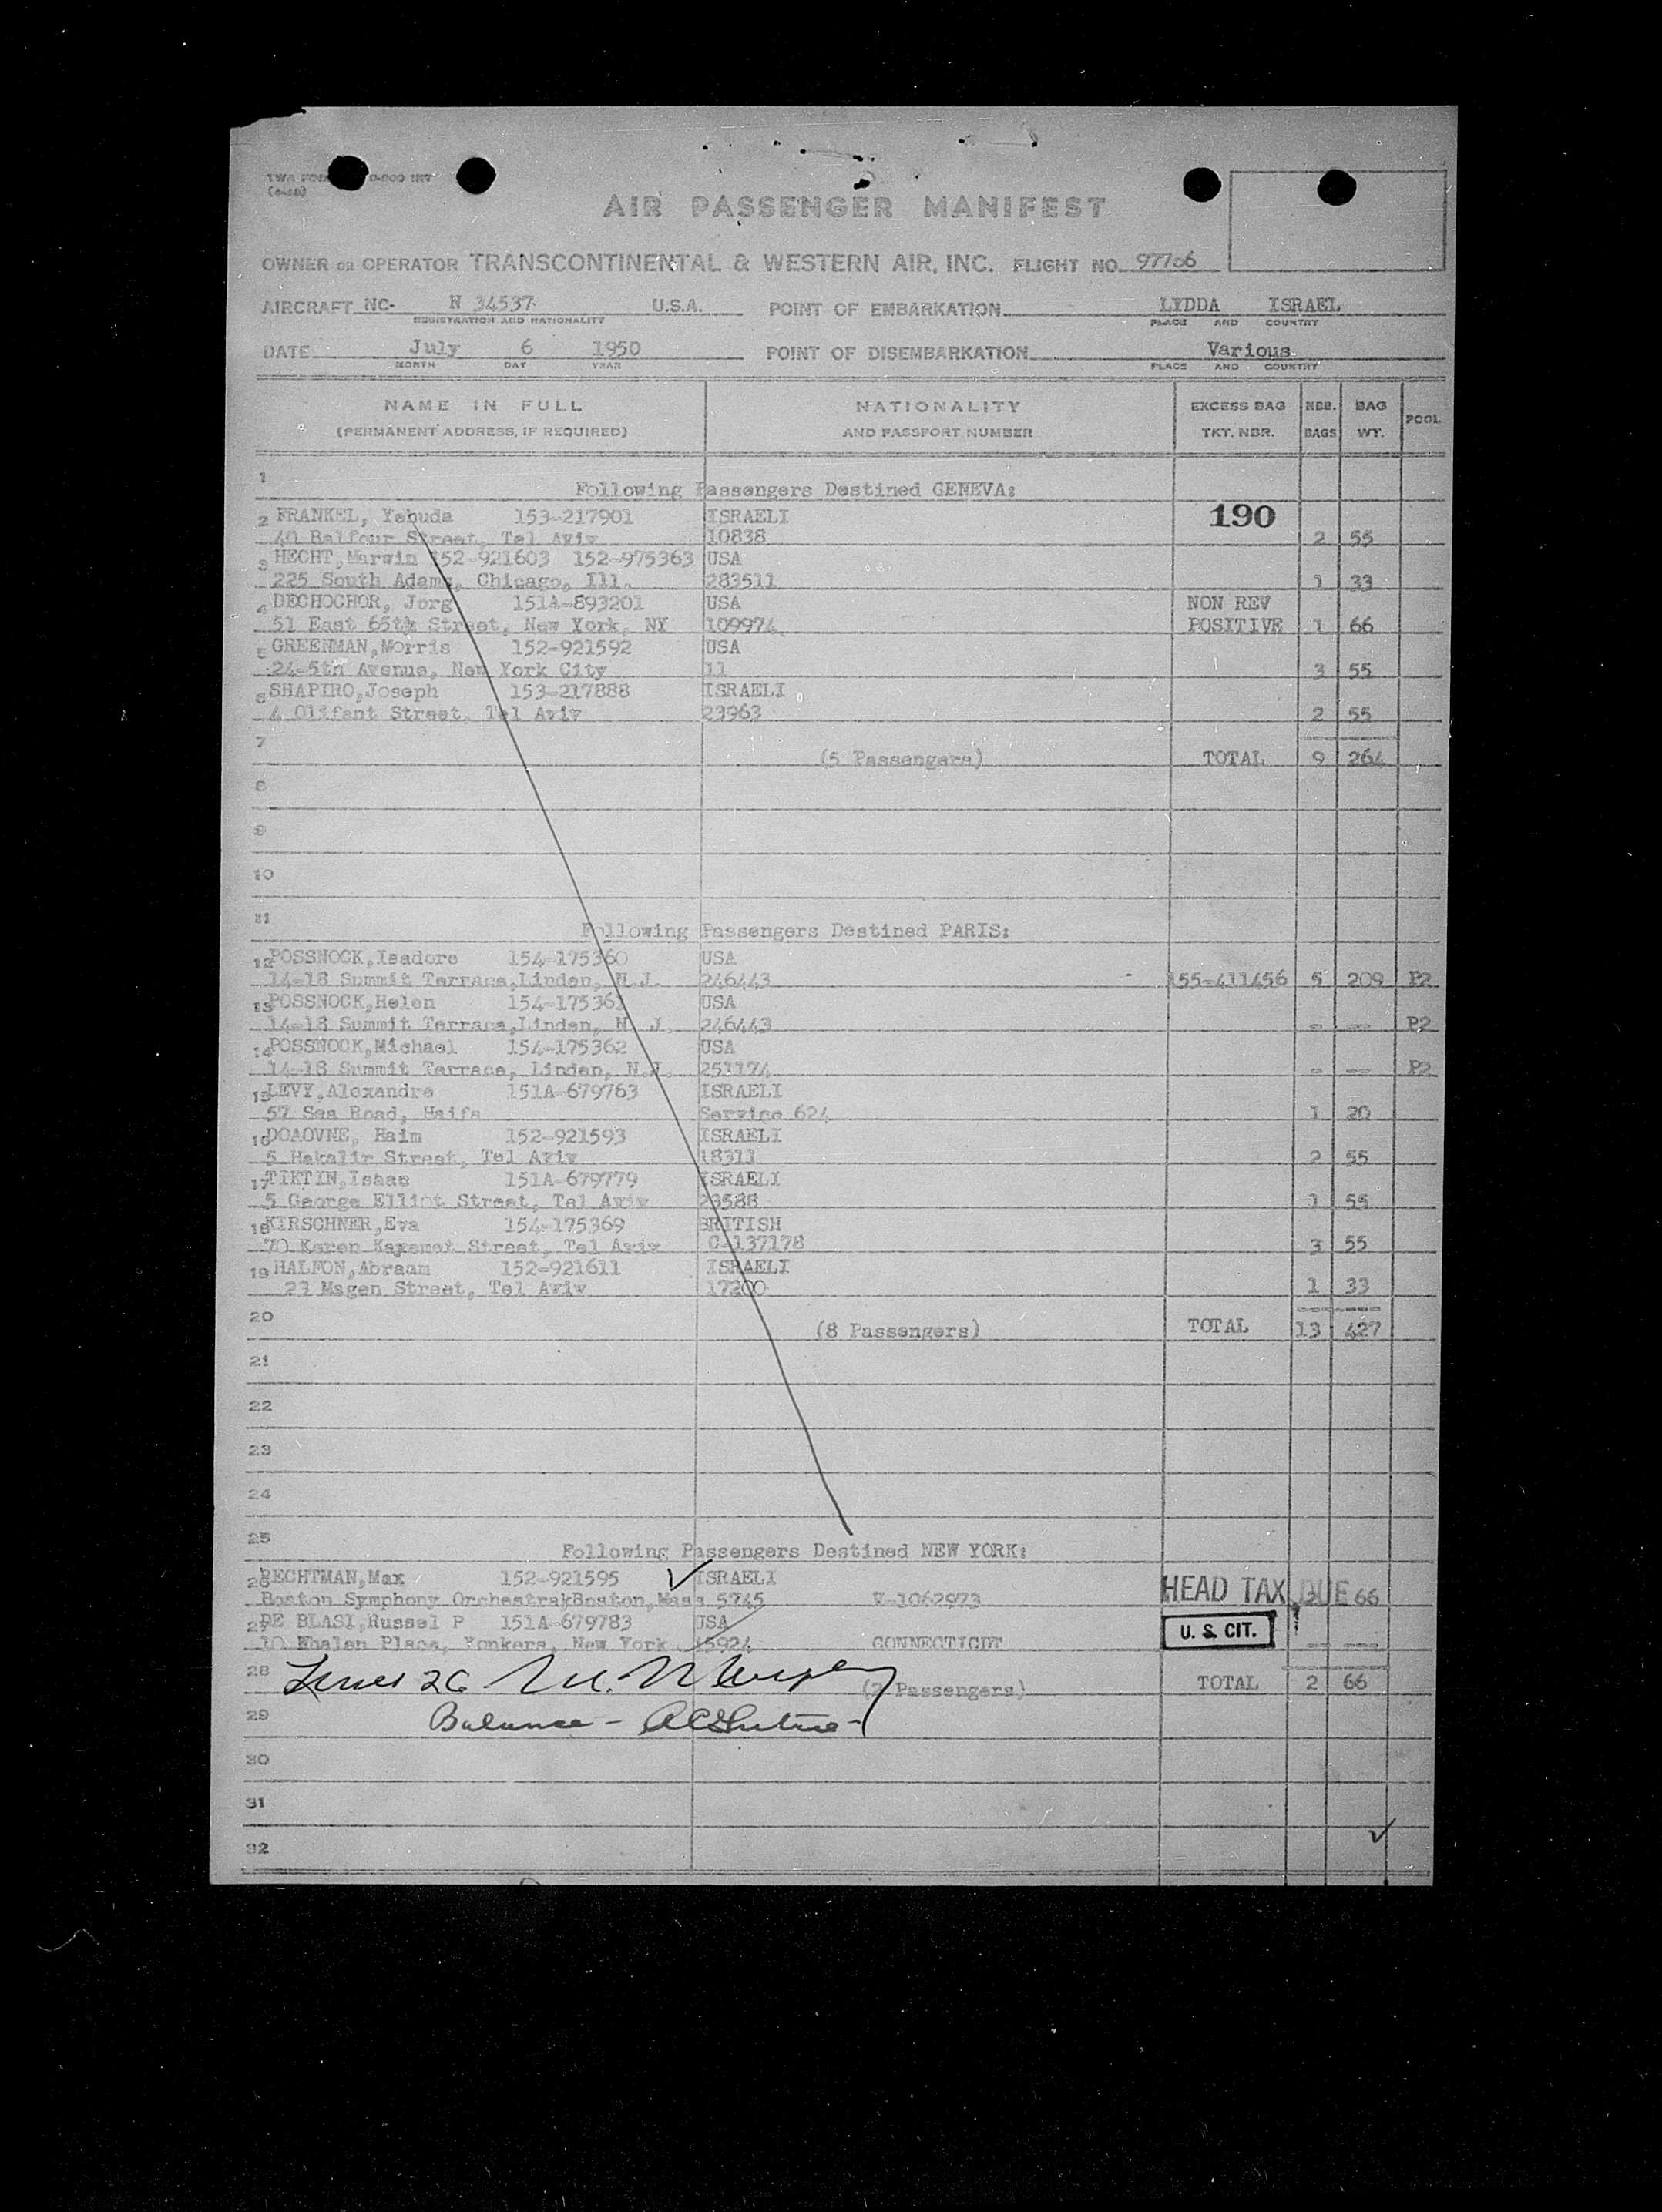 TWA FORM 0-800 INT
AIR PASSENGER MANIFEST
OWNER OR OPERATOR TRANSCONTINENTAL & WESTERN AIR, INC. FLIGHT NO. 97706
AIRCRAFT NC- N 34537 U.S.A. POINT OF EMBARKATION LYDDA ISRAEL
REGISTRATION AND NATIONALITY PLACE AND COUNTRY
DATE July 6 1950 POINT OF DISEMBARKATION Various
MONTH DAY YEAR PLACE AND COUNTRY
NAME IN FULL NATIONALITY EXCESS BAG NBR. BAG POOL
(PERMANENT ADDRESS, IF REQUIRED) AND PASSPORT NUMBER TKT. NBR. BAGS WT.
1
Following Passengers Destined GENEVA:
2 FRANKEL, Yehuda 153-217901 ISRAELI 190
40 Balfour Street, Tel Aviv 10838 2 55
3 HECHT, Marwin 152-921603 152-975363 USA
225 South Adams, Chicago, Ill. 283511 1 33
4 DECHOCHOR, Jorg 151A-893201 USA NON REV
51 East 65th Street, New York, NY 109974 POSITIVE 1 66
5 GREENMAN, Morris 152-921592 USA
24-5th Avenue, New York City 11 3 55
6 SHAPIRO, Joseph 153-217888 ISRAELI
4 Olifant Street, Tel Aviv 23963 2 55
7 (5 Passengers) TOTAL 9 264
8
9
10
11
Following Passengers Destined PARIS:
12 POSSNOCK, Isadore 154-175360 USA
14-18 Summit Terrace, Linden, N.J. 246443 155-411456 5 209 P2
13 POSSNOCK, Helen 154-175361 USA
14-18 Summit Terrace, Linden, N.J. 246443 - -- P2
14 POSSNOCK, Michael 154-175362 USA
14-18 Summit Terrace, Linden, N.J. 251174 - -- P2
15 LEVY, Alexandre 151A-679763 ISRAELI
57 Sea Road, Haifa Service 624 1 20
16 DOAOVNE, Haim 152-921593 ISRAELI
5 Hakalir Street, Tel Aviv 18311 2 55
17 TIKTIN, Isaac 151A-679779 ISRAELI
5 George Elliot Street, Tel Aviv 23588 1 55
18 KIRSCHNER, Eva 154-175369 BRITISH
70 Karen Kayemet Street, Tel Aviv C-137178 3 55
19 HALFON, Abraam 152-921611 ISRAELI
23 Magen Street, Tel Aviv 17200 1 33
20 (8 Passengers) TOTAL 13 427
21
22
23
24
25
Following Passengers Destined NEW YORK:
26 RECHTMAN, Max 152-921595 ISRAELI
Boston Symphony Orchestra Boston, Mass 5745 V-1062973 HEAD TAX DUE 66
27 DE BLASI, Russel P 151A-679783 USA
10 Whalen Place, Yonkers, New York 15924 CONNECTICUT U. S. CIT. -- ---
28 Lines 26 (2 Passengers) TOTAL 2 66
29 Balance -
30
31
32